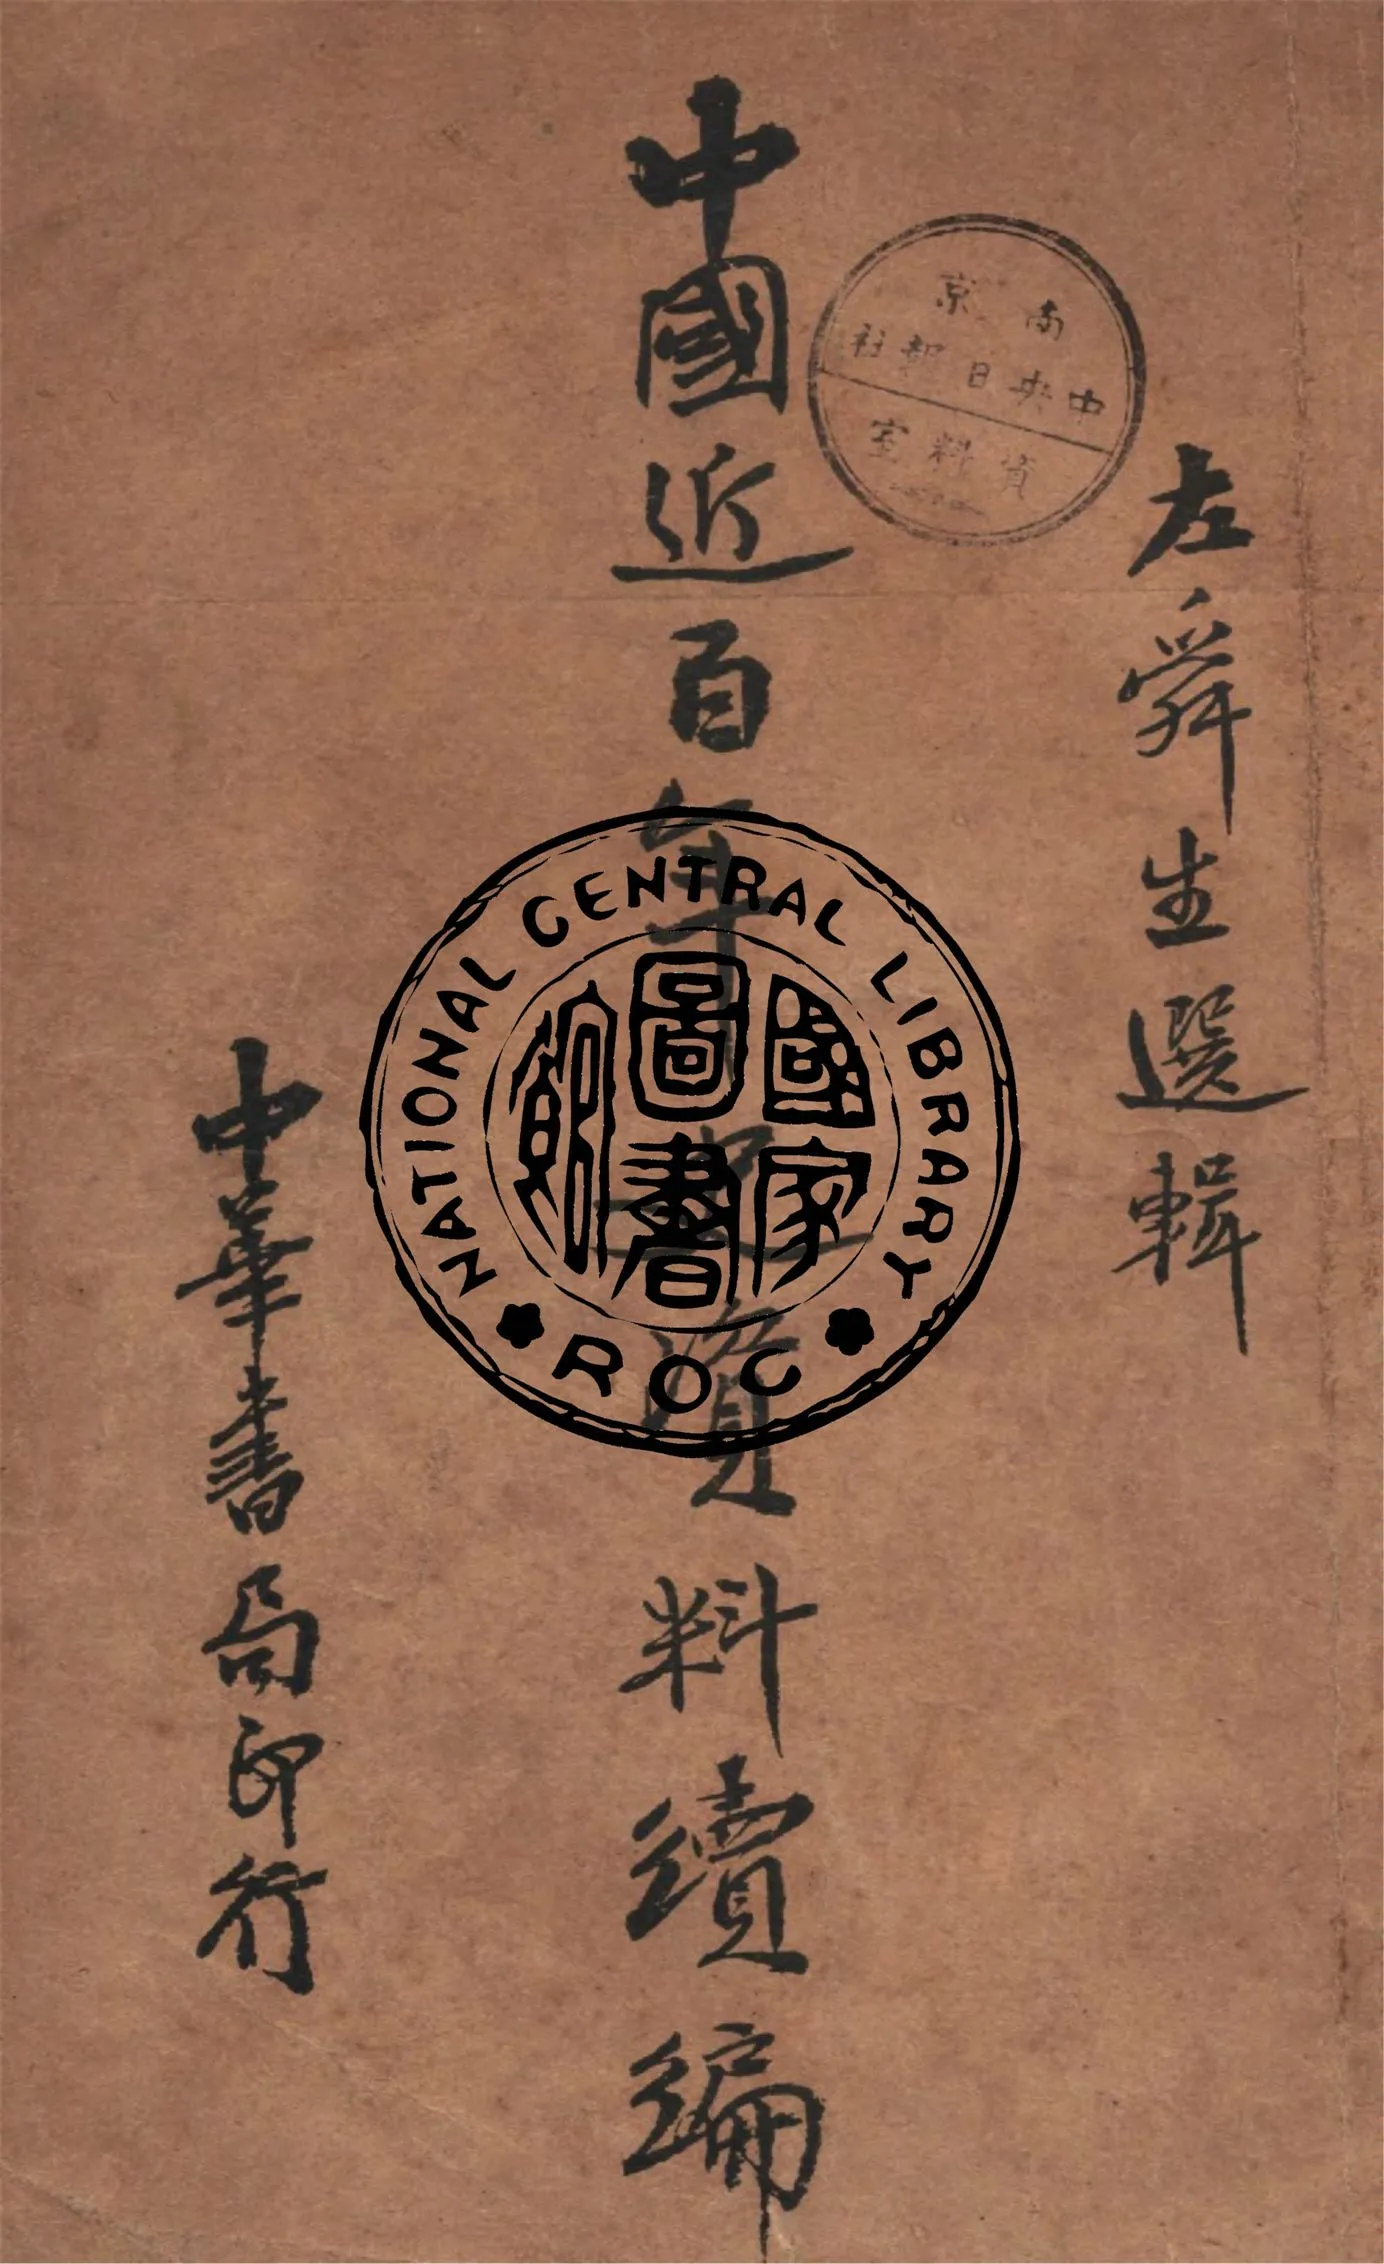 左舜生選輯
中國近百年史資料續編
中華書局印行
南京
中央日報社
資料室
NATIONAL CENTRAL LIBRARY
國家圖書館
ROC